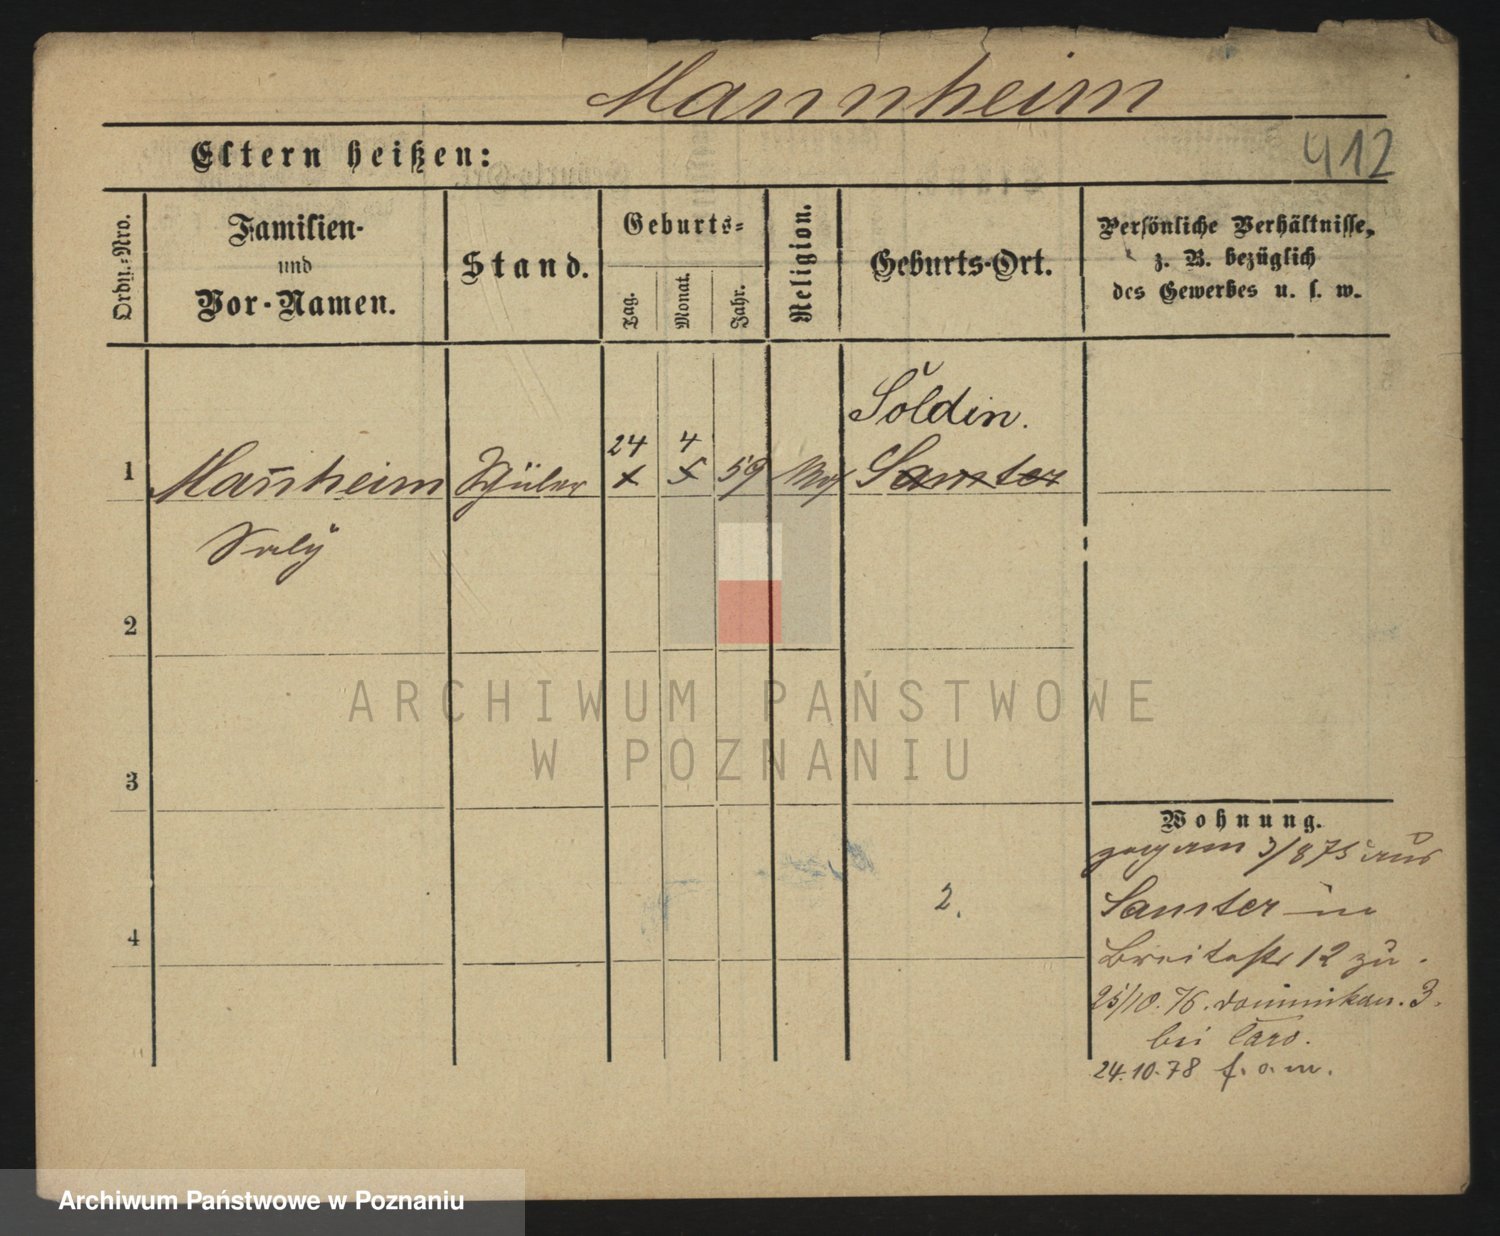 Mannheim
412
Eltern heißen:
Ordn.-Nro.
Familien-
und
Vor-Namen.
Stand.
Geburts-
Tag.
Monat.
Jahr.
Religion.
Geburts-Ort.
Persönliche Verhältnisse,
z. B. bezüglich
des Gewerbes u. s. w.
Soldin.
24 4
1 Mannheim Schüler 59 Mos Samter
Saly
2
3
4
Wohnung.
am 3/8 75 aus
Samter in
2. Breitestr 12 zu.
25/10. 76. Dominikan. 3.
bei Caro.
24.10.78 f. o. m.
ARCHIWUM PAŃSTWOWE
W POZNANIU
Archiwum Państwowe w Poznaniu